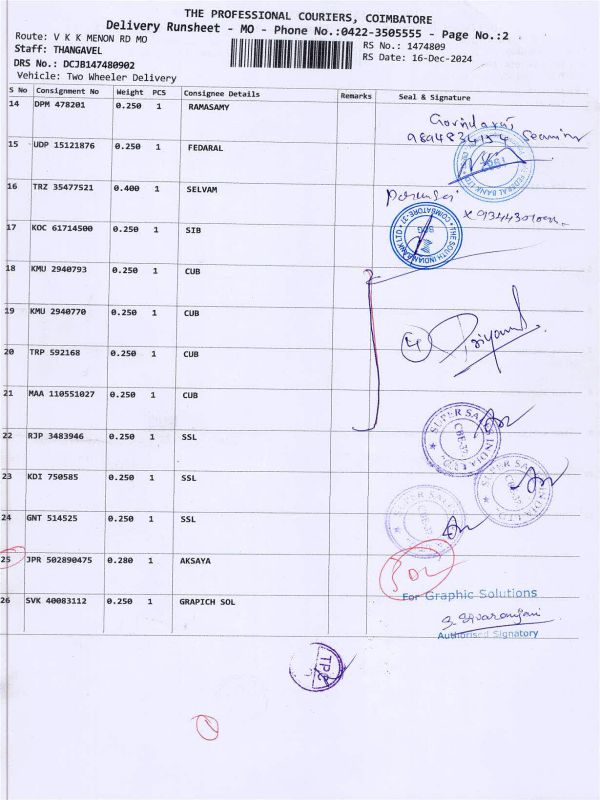 THE PROFESSIONAL COURIERS, COIMBATORE
Delivery Runsheet - MO - Phone No.:0422-3505555 - Page No.:2
Route: V K K MENON RD MO
RS No.: 1474809
Staff: THANGAVEL
RS Date: 16-Dec-2024
DRS No.: DCJB147480902
Vehicle: Two Wheeler Delivery
S No Consignment No Weight PCS Consignee Details Remarks Seal & Signature
14 DPM 478201 0.250 1 RAMASAMY
9894834154
15 UDP 15121876 0.250 1 FEDARAL
16 TRZ 35477521 0.400 1 SELVAM
17 KOC 61714500 0.250 1 SIB
THE SOUTH INDIAN BANK LTD COIMBATORE
18 KMU 2940793 0.250 1 CUB
19 KMU 2940770 0.250 1 CUB
4
20 TRP 592168 0.250 1 CUB
21 MAA 110551027 0.250 1 CUB
22 RJP 3483946 0.250 1 SSL
SUPER SALES INDIA LTD. CBE-37
23 KDI 750585 0.250 1 SSL
SUPER SALES INDIA LTD. CBE-37
24 GNT 514525 0.250 1 SSL
25 JPR 502890475 0.280 1 AKSAYA
26 SVK 40083112 0.250 1 GRAPICH SOL
For Graphic Solutions
Authorised Signatory
TPC
1